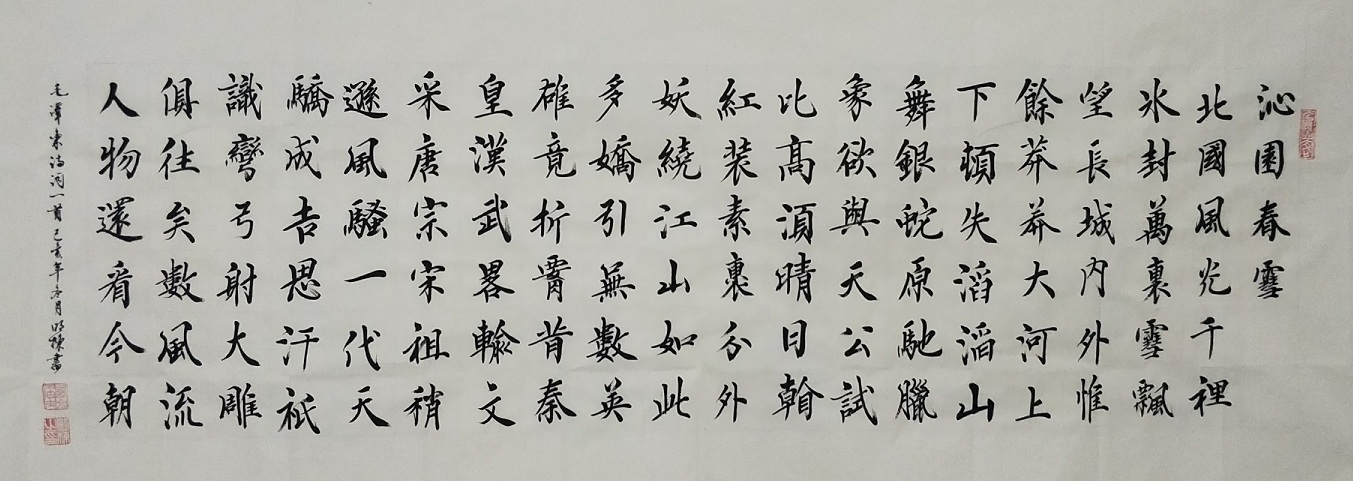 沁園春雪
北國風光千裡
冰封萬裏雪飄
望長城內外惟
餘莽莽大河上
下頓失滔滔山
舞銀蛇原馳臘
象欲與天公試
比高湏晴日翰
紅装素裹分外
妖繞江山如此
多嬌引無數英
雄竟折昔秦
皇漢武畧輸文
采唐宗宋祖稍
遜風騷一代天
驕成吉思汗祇
識彎弓射大雕
俱往矣數風流
人物還看今朝
毛澤東詩詞一首 己亥年冬月 書